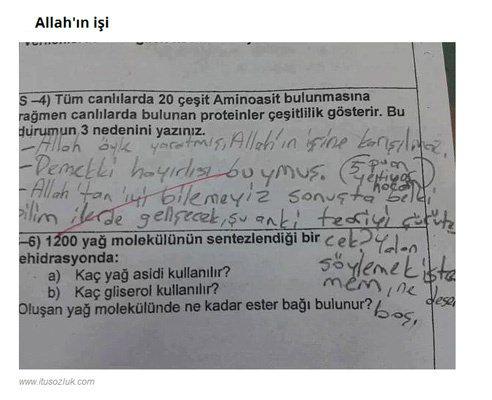 Allah'ın işi
S –4) Tüm canlılarda 20 çeşit Aminoasit bulunmasına
rağmen canlılarda bulunan proteinler çeşitlilik gösterir. Bu
durumun 3 nedenini yazınız.
-Allah öyle yaratmış, Allah'ın işine karışılmaz.
-Demekki hayırlısı buymuş. (5 puan yetiyor hocam)
-Allah'tan iyi bilemeyiz sonuçta belki
bilim ilerde gelişecek, şu anki teoriyi çürüte
cek? Yalan
söylemek iste
mem, ne desem
boş.
–6) 1200 yağ molekülünün sentezlendiği bir
ehidrasyonda:
a) Kaç yağ asidi kullanılır?
b) Kaç gliserol kullanılır?
Oluşan yağ molekülünde ne kadar ester bağı bulunur?
www.itusozluk.com